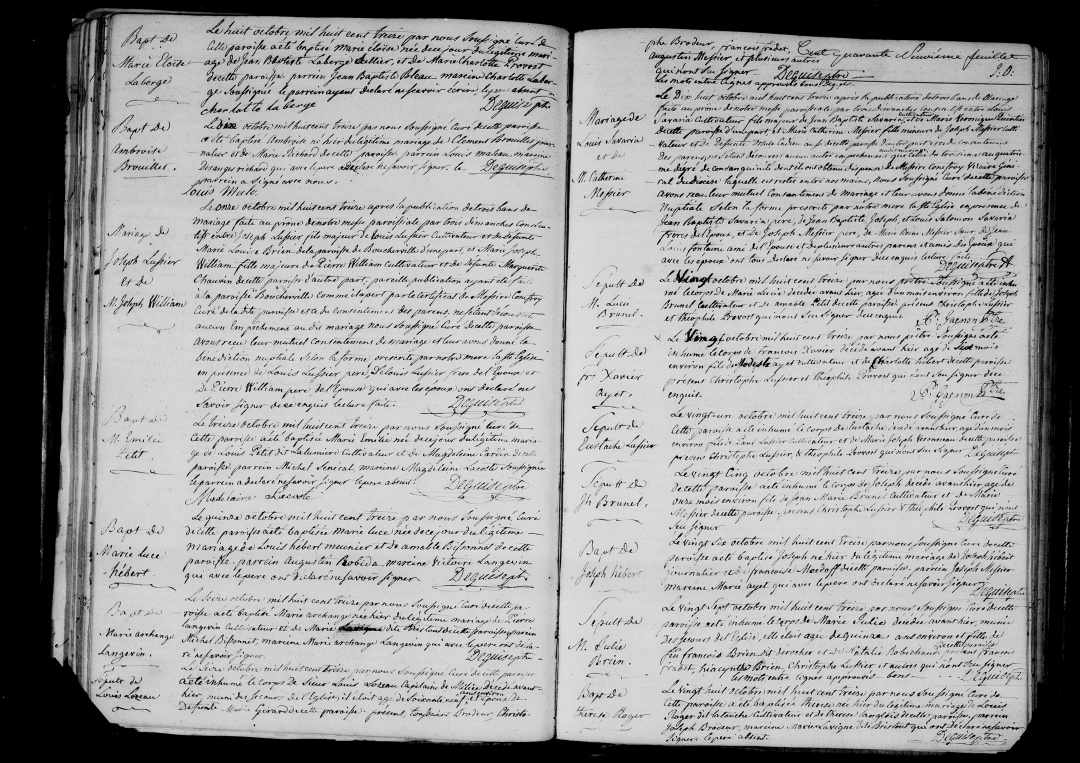 Bapt de
Marie Eloïse
Laberge
Le huit octobre mil huit cent treize par nous Soussigné Curé de
Cette paroisse a été baptisé Marie eloïse née de ce jour du légitime mari-
age de Jean Baptiste Laberge Sellier, et de Marie Charlotte Provost
de cette paroisse parrein Jean Baptiste marreine Charlotte Laber-
ge Soussignée le parrein ayent declaré ne savoir ecrire le pere absent
charlotte laberge Deguise ptre
Bapt de
Ambroise
Brouillet
Le dix octobre mil huit cent treize par nous Soussigné Curé de cette paroisse
a été baptisé Ambroise né hier du légitime mariage de Clement Brouillet jour-
nalier et de Marie Richard de cette paroisse parrein Louis maleau, marreine
Desanges richard qui avec le pere ont declaré ne savoir signer, le Deguise ptre
parrein a Signé avec nous.
Louis
Mariage de
Joseph Lussier
et de
M. Joseph William
Le onze octobre mil huit cent treize apres la publication de trois bans de
mariage faite au prône de notre messe paroissiale par trois dimanches consécu-
tifs entre Joseph Lussier fils majeur de Louis Lussier Cultivateur et de defunte
Marie Louise Brien de la paroisse de Boucherville d'une part, et Marie Joseph
William fille majeure de Pierre William Cultivateur et de defunte Marguerite
Chauvin de cette paroisse d'autre part, pareille publication ayant été fait
a la paroisse Boucherville comme il apert par le certificat de Messire Conefroy
Curé de la dite paroisse et du consentement des parens, ne s'etant decouvert
aucun Empechement au dit mariage nous Soussigné Curé de cette paroisse
avons recu leur mutuel Consentement de mariage et leur avons donné la
bénédiction nuptiale Selon la forme prescrite par notre mere la Ste Eglise
en présence de Louis Lussier pere, de Louis Lussier frere de l'Epoux et
de Pierre William pere de l'Epouse qui avec les epoux ont declaré ne
Savoir Signer de ce enquis lecture faite. Deguise ptre
Bapt de
M. Emilie
Petit
Le treize octobre mil huit cent treize par nous Soussigné Curé de
Cette paroisse a été baptisée Marie Emilie née de ce jour du légitime maria-
ge de Louis Petit dit Lalumiere Cultivateur et de Magdeleine de cette
paroisse parrein Michel Senecal, marreine Magdeleine Lacoste Soussignée
le parrein a declaré ne Savoir Signer le pere absent. Deguise ptre
Madelaine Lacoste
Bapt de
Marie Luce
hébert
Le quinze octobre mil huit cent treize par nous Soussigné Curé
de cette paroisse a été baptisée Marie Luce née de ce jour du légitime
mariage de Louis hébert meunier et de amable Bissonnet de cette
paroisse. parrein Augustin Robida, marreine Victoire Langevin
que avec le pere ont declaré ne savoir signer Deguise ptre
Bapt de
Marie archange
Langevin
Le Seize octobre mil huit cent treize par nous Soussigné Curé de cette pa-
roisse a été baptisé Marie archange née hier du légitime mariage de Pierre
Langevin Cultivateur et de Marie de cette paroisse, parrein
Michel Bissonnet, marreine Marie archange Langevin qui avec le pere ont decla-
ré ne savoir signer. Deguise ptre
Sepult de
Louis Loreau
Le Seize octobre mil huit cent treize par nous Soussigné Curé de cette paroisse
a été inhumé le Corps de Sieur Louis Loreau Capitaine de Milice decedé avant-
hier, muni des Secours de l'Eglise, il etoit age de Soixante neuf ans environ, Epoux de
Defunte Marie Girard de cette paroisse. présents, toussaint Brodeur, Christo-
phe Brodeur, françois fradet, Cent quarante Neuvieme feuillet
Augustin Messier et plusieurs autres P.D.
qui n'ont su Signer Deguise ptre
les mots entre lignes approuvés
Mariage de
Louis Savaria
et de
M. Catherine
Messier
Le Dix huit octobre mil huit cent treize après la publication de trois bans de Mariage
faite au prone de notre messe paroissiale par trois dimanches consécutifs entre Louis
Savaria Cultivateur fils majeur de Jean Baptiste Savaria cultivateur et de Marie Veronique
de cette paroisse d'une part et Marie Catherine Messier fille mineure de Joseph Messier Culti-
vateur et de Defunte de cette paroisse d'autre part et du consentement
des parens, ne s'etant decouvert aucun autre empechement que celui du troisieme au quatrie-
me degré de consanguinité dont ils ont obtenu dispense de Messire Conefroy Vicaire Géné-
ral du diocese laquelle est restée entre nos mains, Nous Soussigné Curé de cette paroisse
avons recu leur mutuel Consentement de mariage et leur avons donné la bénédiction
Nuptiale Selon la forme prescrite par notre mere la Ste Eglise en presence de
Jean Baptiste Savaria pere, de Jean Baptiste Joseph, et Louis Salomon Savaria
freres de l'Epoux, et de Joseph Messier pere, de Marie Messier Soeur, de Jean
Louis fontaine ami de l'Epouse et de plusieurs autres parens et amis des Epoux qui
avec les époux ont tous declaré ne savoir signer de ce enquis lecture faite
Deguise ptre
Sepult de
M. Luce
Brunel
Le Vingt octobre mil huit cent treize par nous prêtre Soussigné a été inhu-
mé le corps de Marie Lucie decedée avant hier age d'un an environ fille de Joseph
Brunel Cultivateur et de amable Petit de cette paroisse présent Christophe Lussier
et theophile Provost qui n'ont Su Signer de ce enquis
Pr. Gagnon Ptre
Sepult de
fr. Xavier
Ayet
x Le Vingt octobre mil huit cent treize par nous prêtre Soussigné a été
inhumé le corps de francois Xavier decedé avant hier agé de Six mois
environ fils de Modeste ayet cultivateur et de Charlotte hébert de cette paroisse
présent Christophe Lussier et théophile Provost qui n'ont Su Signer de ce
enquis. Pr. Gagnon Ptre
Sepult de
Eustache Lussier
Le vingt-un octobre mil huit cent treize par nous Soussigné Curé de
Cette paroisse a été inhumé le corps de Eustache decedé avant hier age d'un mois
environ fils de Lussier Cultivateur et de Marie Joseph de cette paroisse
présens Christophe Lussier, & théophile Provost qui n'ont Su Signer Deguise ptre
Sepult de
Jh Brunel
Le Vingt Cinq octobre mil huit cent treize par nous Soussigné Curé
de cette paroisse a été inhumé le corps de Joseph decedé avant hier age de
onze mois environ fils de Jean Marie Brunel Cultivateur et de Marie
Messier de cette paroisse. présens Christophe Lussier & theophile Provost qui n'ont
Su Signer Deguise ptre
Bapt de
Joseph hébert
Le vingt Six octobre mil huit cent treize par nous Soussigné Curé de cette
paroisse a été baptisé Joseph né hier du légitime mariage de Joseph hébert
journalier et de francoise de cette paroisse parrein Joseph Messier
marreine Marie ayet qui avec le pere ont declaré ne savoir signer
Deguise ptre
Sepult de
M. Julie
Brien
Le vingt Sept octobre mil huit cent treize par nous Soussigné Curé de cette
paroisse a été inhumé le corps de Marie Julie decedée avant hier, munie
des Secours de l'Eglise, elle etoit age de quinze ans environ et fille de
feu francois Brien dit derocher et de Natalie Robichaud de cette paroisse
fradet, hiacynthe Brien, Christophe Lussier et autres qui n'ont Su signer
les mots entre lignes approuvés bons Deguise ptre
Bapt de
therese Plager
Le vingt huit octobre mil huit cent treize par nous Soussigné Curé de
Cette paroisse a été baptisée therese née hier du légitime mariage de Louis
Plager dit latouche Cultivateur et de therese Langlois de cette paroisse, parrein
Joseph Brodeur, marreine Marie Lavigne dite Brisetout qui ont declaré ne savoir
Signer le pere absent. Deguise ptre